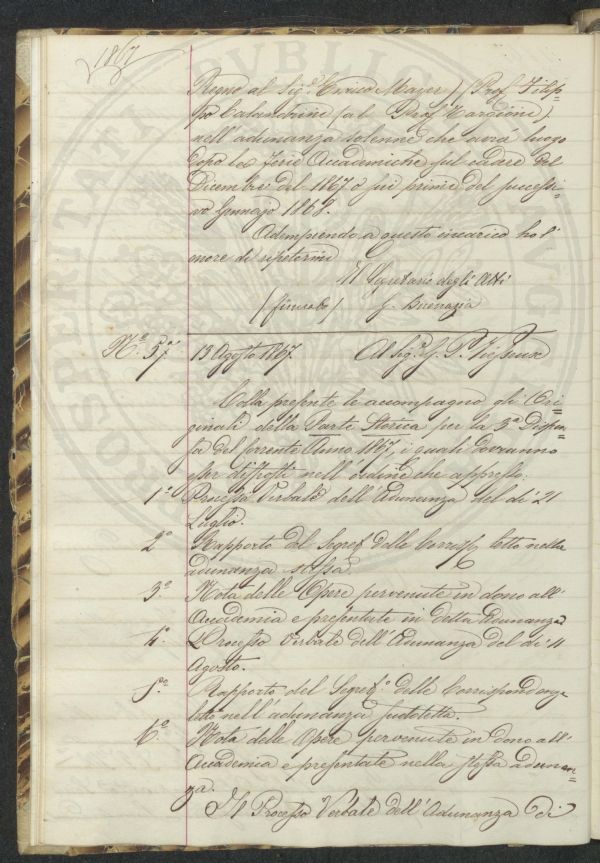 1867
Regno al Sig.r Enrico Mayer) (Prof. Filip=
po Calandrini (al Prof. Targioni)
nell'adunanza solenne che avrà luogo
dopo le Ferie Accademiche sul cadere del
Dicembre del 1867 o sui primi del successi=
vo Gennajo 1868.
Adempiendo a questo incarico ho l'
onore di ripetermi
Il Segretario degli Atti
(firmato)
N.o 57. 13 Agosto 1867. Al Sig. G. P. Vieusseux
Colla presente le accompagno gli Ori=
ginali della Parte Storica per la 3a Dispen=
sa del corrente Anno 1867, i quali dovranno
esser disposti nell'ordine che appresso:
1.o Processo Verbale dell'Adunanza del dì 21
Luglio.
2.o Rapporto del Segret. delle Corrisp. letto nella
adunanza stessa.
3.o Nota delle Opere pervenute in dono all'
Accademia e presentate in detta Adunanza
4.o Processo Verbale dell'Adunanza del dì 11
Agosto.
5.o Rapporto del Segret.o delle Corrispondenze
letto nell'adunanza sudetta.
6.o Nota delle Opere pervenute in dono all'
Accademia e presentate nella stessa adunan=
za.
Il Processo Verbale dell'Adunanza di